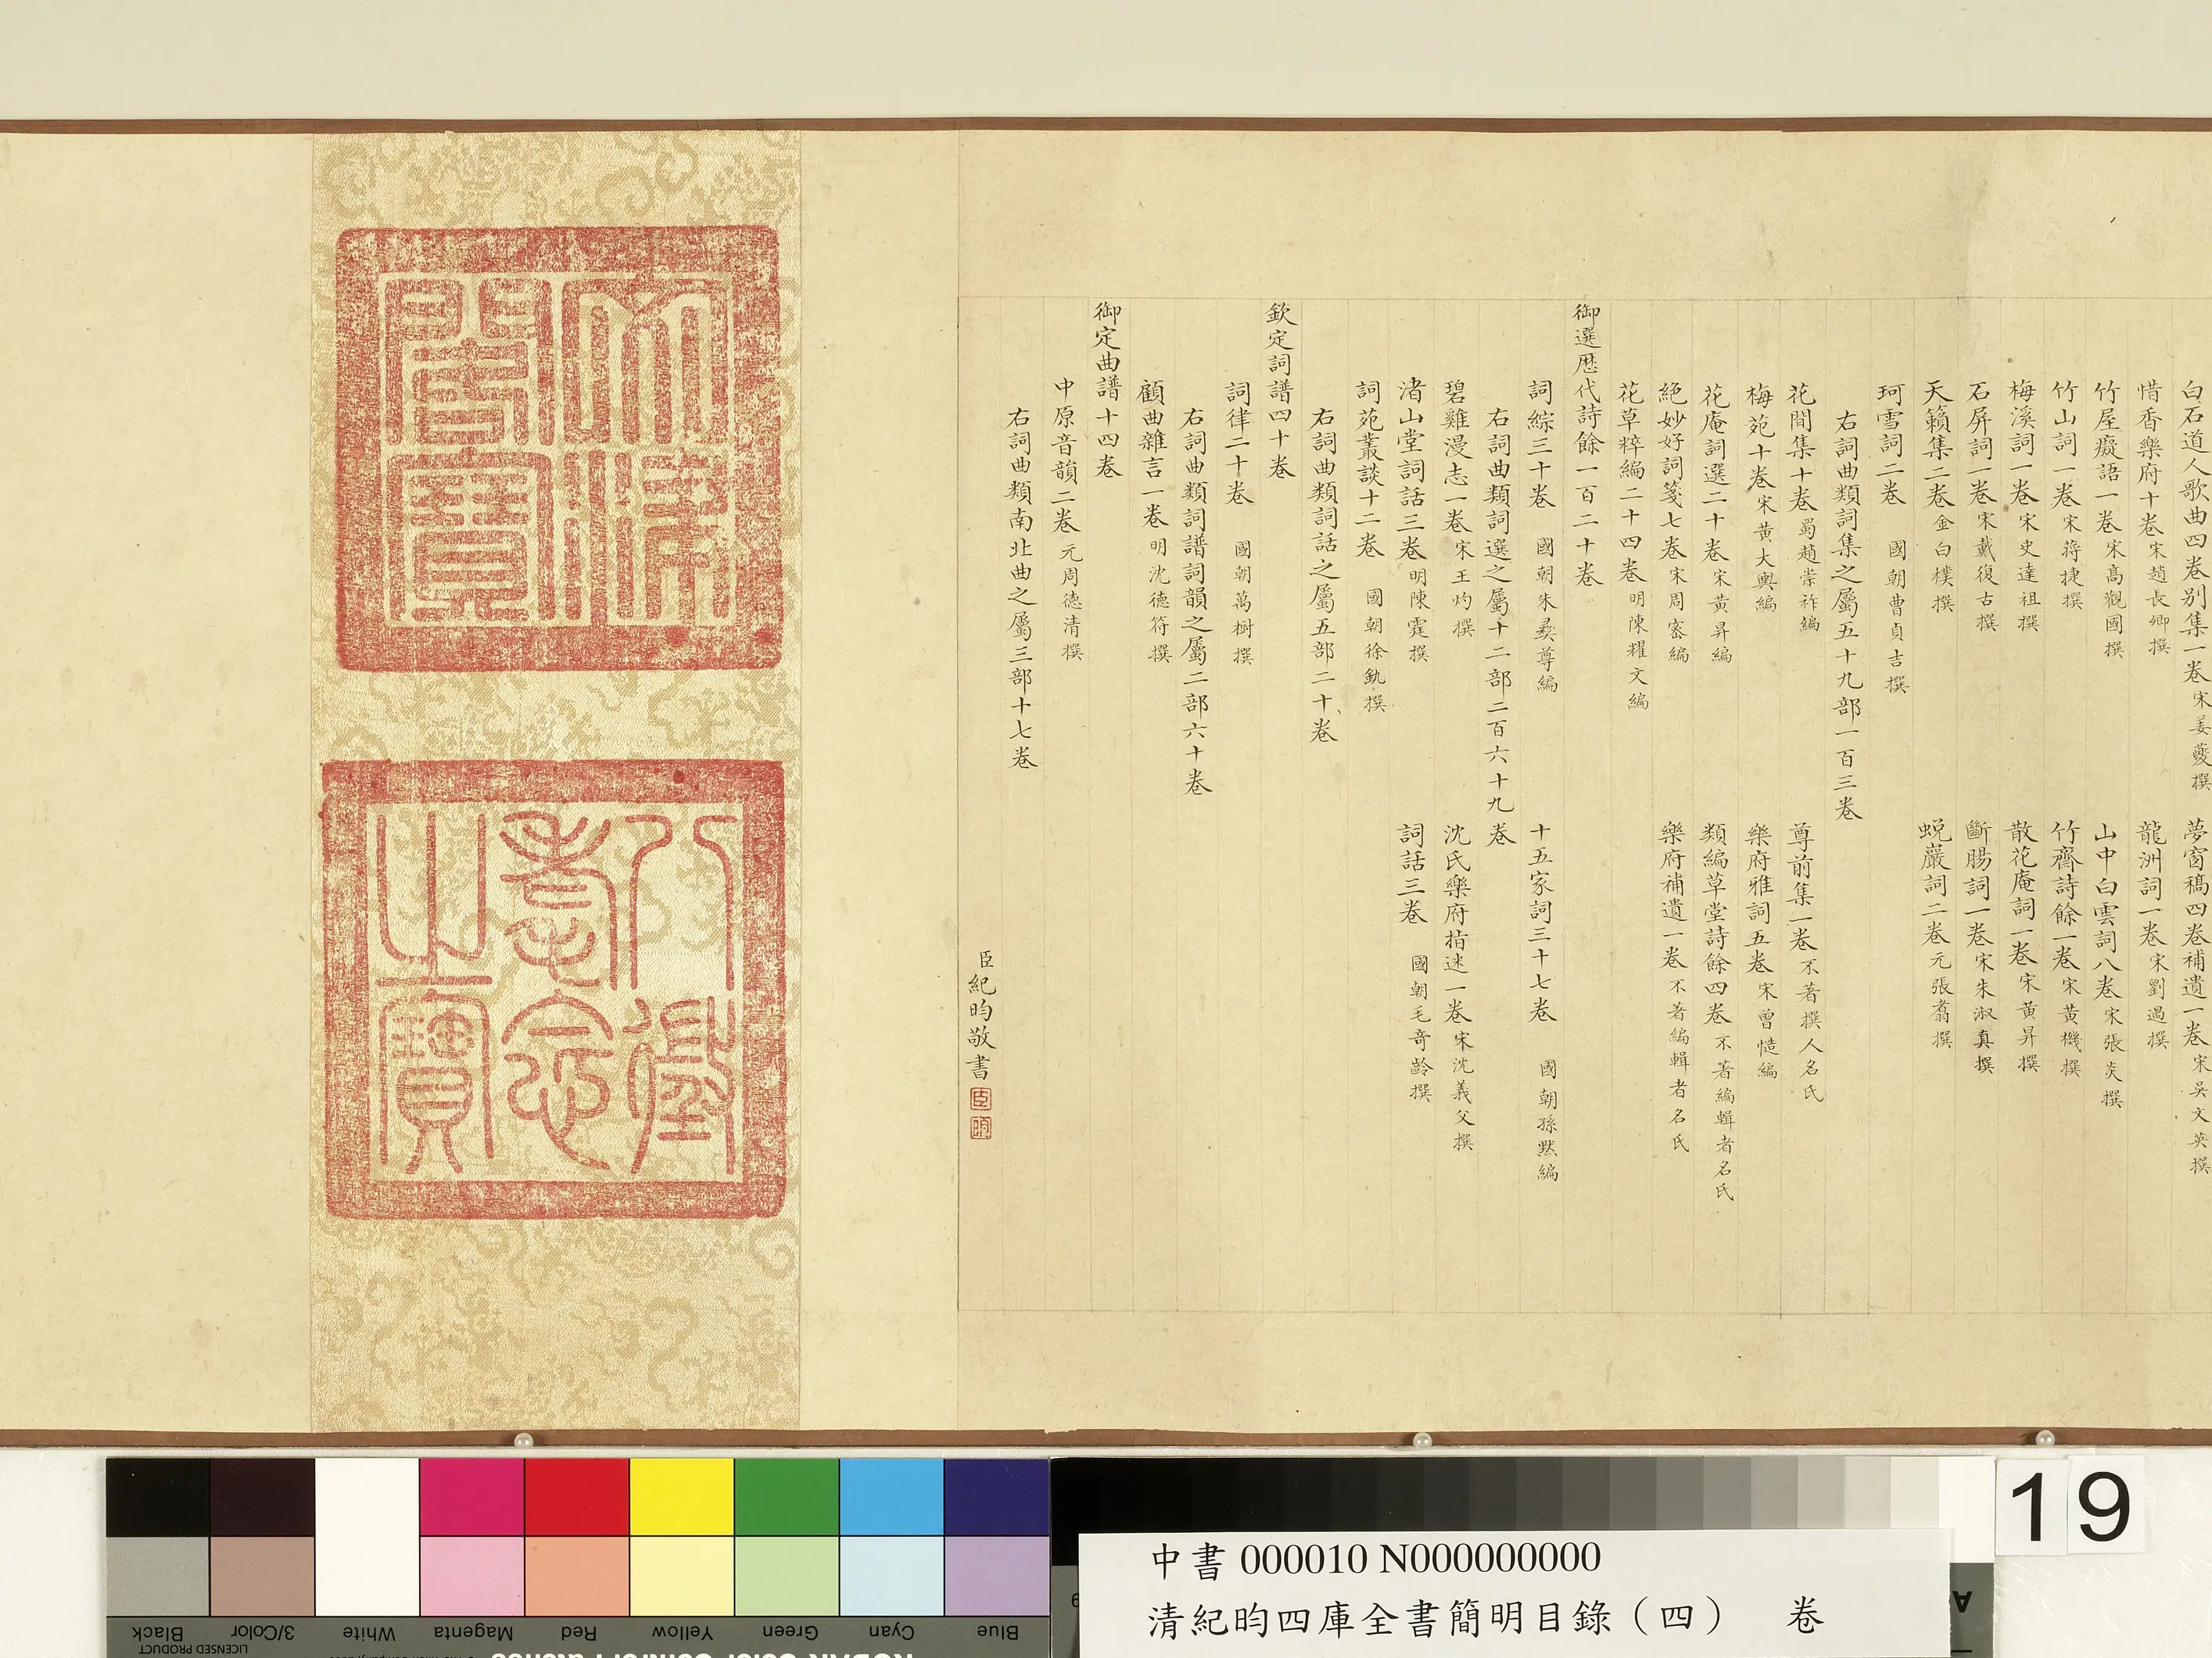 白石道人歌曲四卷別集一卷宋姜夔撰 夢窗稿四卷補遺一卷宋吳文英撰
惜香樂府十卷宋趙長卿撰 龍洲詞一卷宋劉過撰
竹屋癡語一卷宋高觀國撰 山中白雲詞八卷宋張炎撰
竹山詞一卷宋蔣捷撰 竹齋詩餘一卷宋黃機撰
梅溪詞一卷宋史達祖撰 散花庵詞一卷宋黃昇撰
石屏詞一卷宋戴復古撰 斷腸詞一卷宋朱淑真撰
天籟集二卷金白樸撰 蛻巖詞二卷元張翥撰
珂雪詞二卷 國朝曹貞吉撰
右詞曲類詞集之屬五十九部一百三卷
花間集十卷蜀趙崇祚編 尊前集一卷不著撰人名氏
梅苑十卷宋黃大輿編 樂府雅詞五卷宋曾慥編
花庵詞選二十卷宋黃昇編 類編草堂詩餘四卷不著編輯者名氏
絕妙好詞箋七卷宋周密編 樂府補遺一卷不著編輯者名氏
花草粹編二十四卷明陳耀文編
御選歷代詩餘一百二十卷
詞綜三十卷 國朝朱彝尊編 十五家詞三十七卷 國朝孫默編
右詞曲類詞選之屬十二部二百六十九卷
碧雞漫志一卷宋王灼撰 沈氏樂府指迷一卷宋沈義父撰
渚山堂詞話三卷明陳霆撰 詞話三卷 國朝毛奇齡撰
詞苑叢談十二卷 國朝徐釚撰
右詞曲類詞話之屬五部二十卷
欽定詞譜四十卷
詞律二十卷 國朝萬樹撰
右詞曲類詞譜詞韻之屬二部六十卷
顧曲雜言一卷明沈德符撰
御定曲譜十四卷
中原音韻二卷元周德清撰
右詞曲類南北曲之屬三部十七卷
臣紀昀敬書
臣
昀
八徵
耄念
之寶
Black
3/Color
White
Magenta
Red
Yellow
Green
Cyan
Blue
LICENSED PRODUCT
19
中書000010 N000000000
清紀昀四庫全書簡明目錄（四） 卷
A